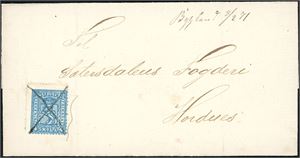 Bygland 7/2 71
Til
Sætersdalens Fogderi
Hordnes